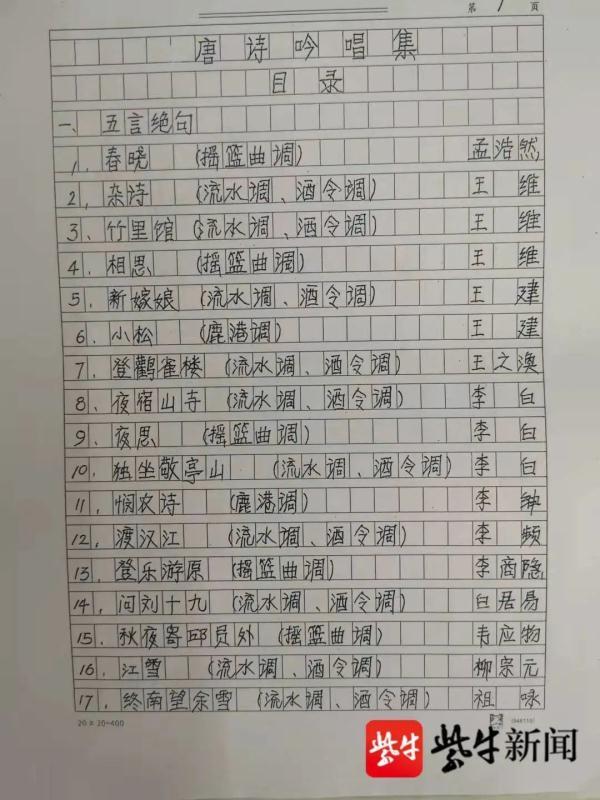 第 1 页
唐诗吟唱集
目录
一、五言绝句
1、春晓 (摇篮曲调) 孟浩然
2、杂诗 (流水调、酒令调) 王维
3、竹里馆 (流水调、酒令调) 王维
4、相思 (摇篮曲调) 王维
5、新嫁娘 (流水调、酒令调) 王建
6、小松 (鹿港调) 王建
7、登鹳雀楼 (流水调、酒令调) 王之涣
8、夜宿山寺 (流水调、酒令调) 李白
9、夜思 (摇篮曲调) 李白
10、独坐敬亭山 (流水调、酒令调) 李白
11、悯农诗 (鹿港调) 李绅
12、渡汉江 (流水调、酒令调) 李频
13、登乐游原 (摇篮曲调) 李商隐
14、问刘十九 (流水调、酒令调) 白居易
15、秋夜寄邱员外 (摇篮曲调) 韦应物
16、江雪 (流水调、酒令调) 柳宗元
17、终南望余雪 (流水调、酒令调) 祖咏
20×20=400
紫牛 紫牛新闻